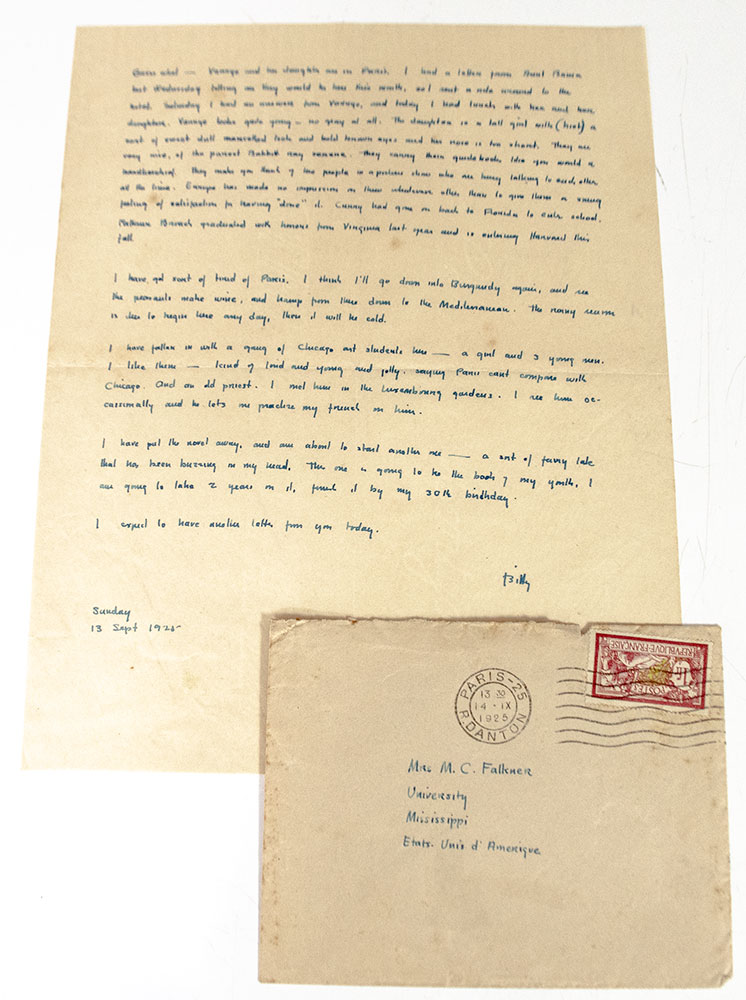 Guess what — Vannye and her daughter are in Paris. I had a letter from Aunt Bama
last Wednesday telling me they would be here this month, so I sent a note around to the
hotel. Saturday I had an answer from Vannye, and today I had lunch with her and her
daughter. Vannye looks quite young — no gray at all. The daughter is a tall girl with (hist) a
sort of sweet dull look and bold brown eyes and her nose is too short. They are
very nice, of the purest Babbitt any . They carry their guidebooks like you would a
handkerchief. They make you think of two people in a picture show who are busy talking to each other
all the time. Europe has made no impression on them whatever other than to give them a smug
feeling of satisfaction for having "done" it. had gone on back to Florida to enter school.
graduated with honors from Virginia last year and is entering Harvard this
fall.
I have got sort of tired of Paris. I think I'll go down into Burgundy again, and see
the peasants make wine, and tramp from there down to the Mediterranean. The rainy season
is due to begin here any day, then it will be cold.
I have fallen in with a gang of Chicago art students here — a girl and 3 young men.
I like them — kind of loud and young and jolly. saying Paris cant compare with
Chicago. And an old priest. I met him in the Luxembourg gardens. I see him oc-
cassinally and he lets me practice my french on him.
I have put the novel away, and am about to start another one — a sort of fairy tale
that has been buzzing in my head. This one is going to be the book of my youth, I
am going to take 2 years on it, finish it by my 30th birthday.
I expect to have another letter from you today.
Billy
Sunday
13 Sept 1925
REPVBLIQVE·FRANÇAISE
POSTES
1F
PARIS-25
13 30
14 - IX
1925
R.DANTON
Mrs M. C. Falkner
University
Mississippi
Etats. Unis d'Amerique